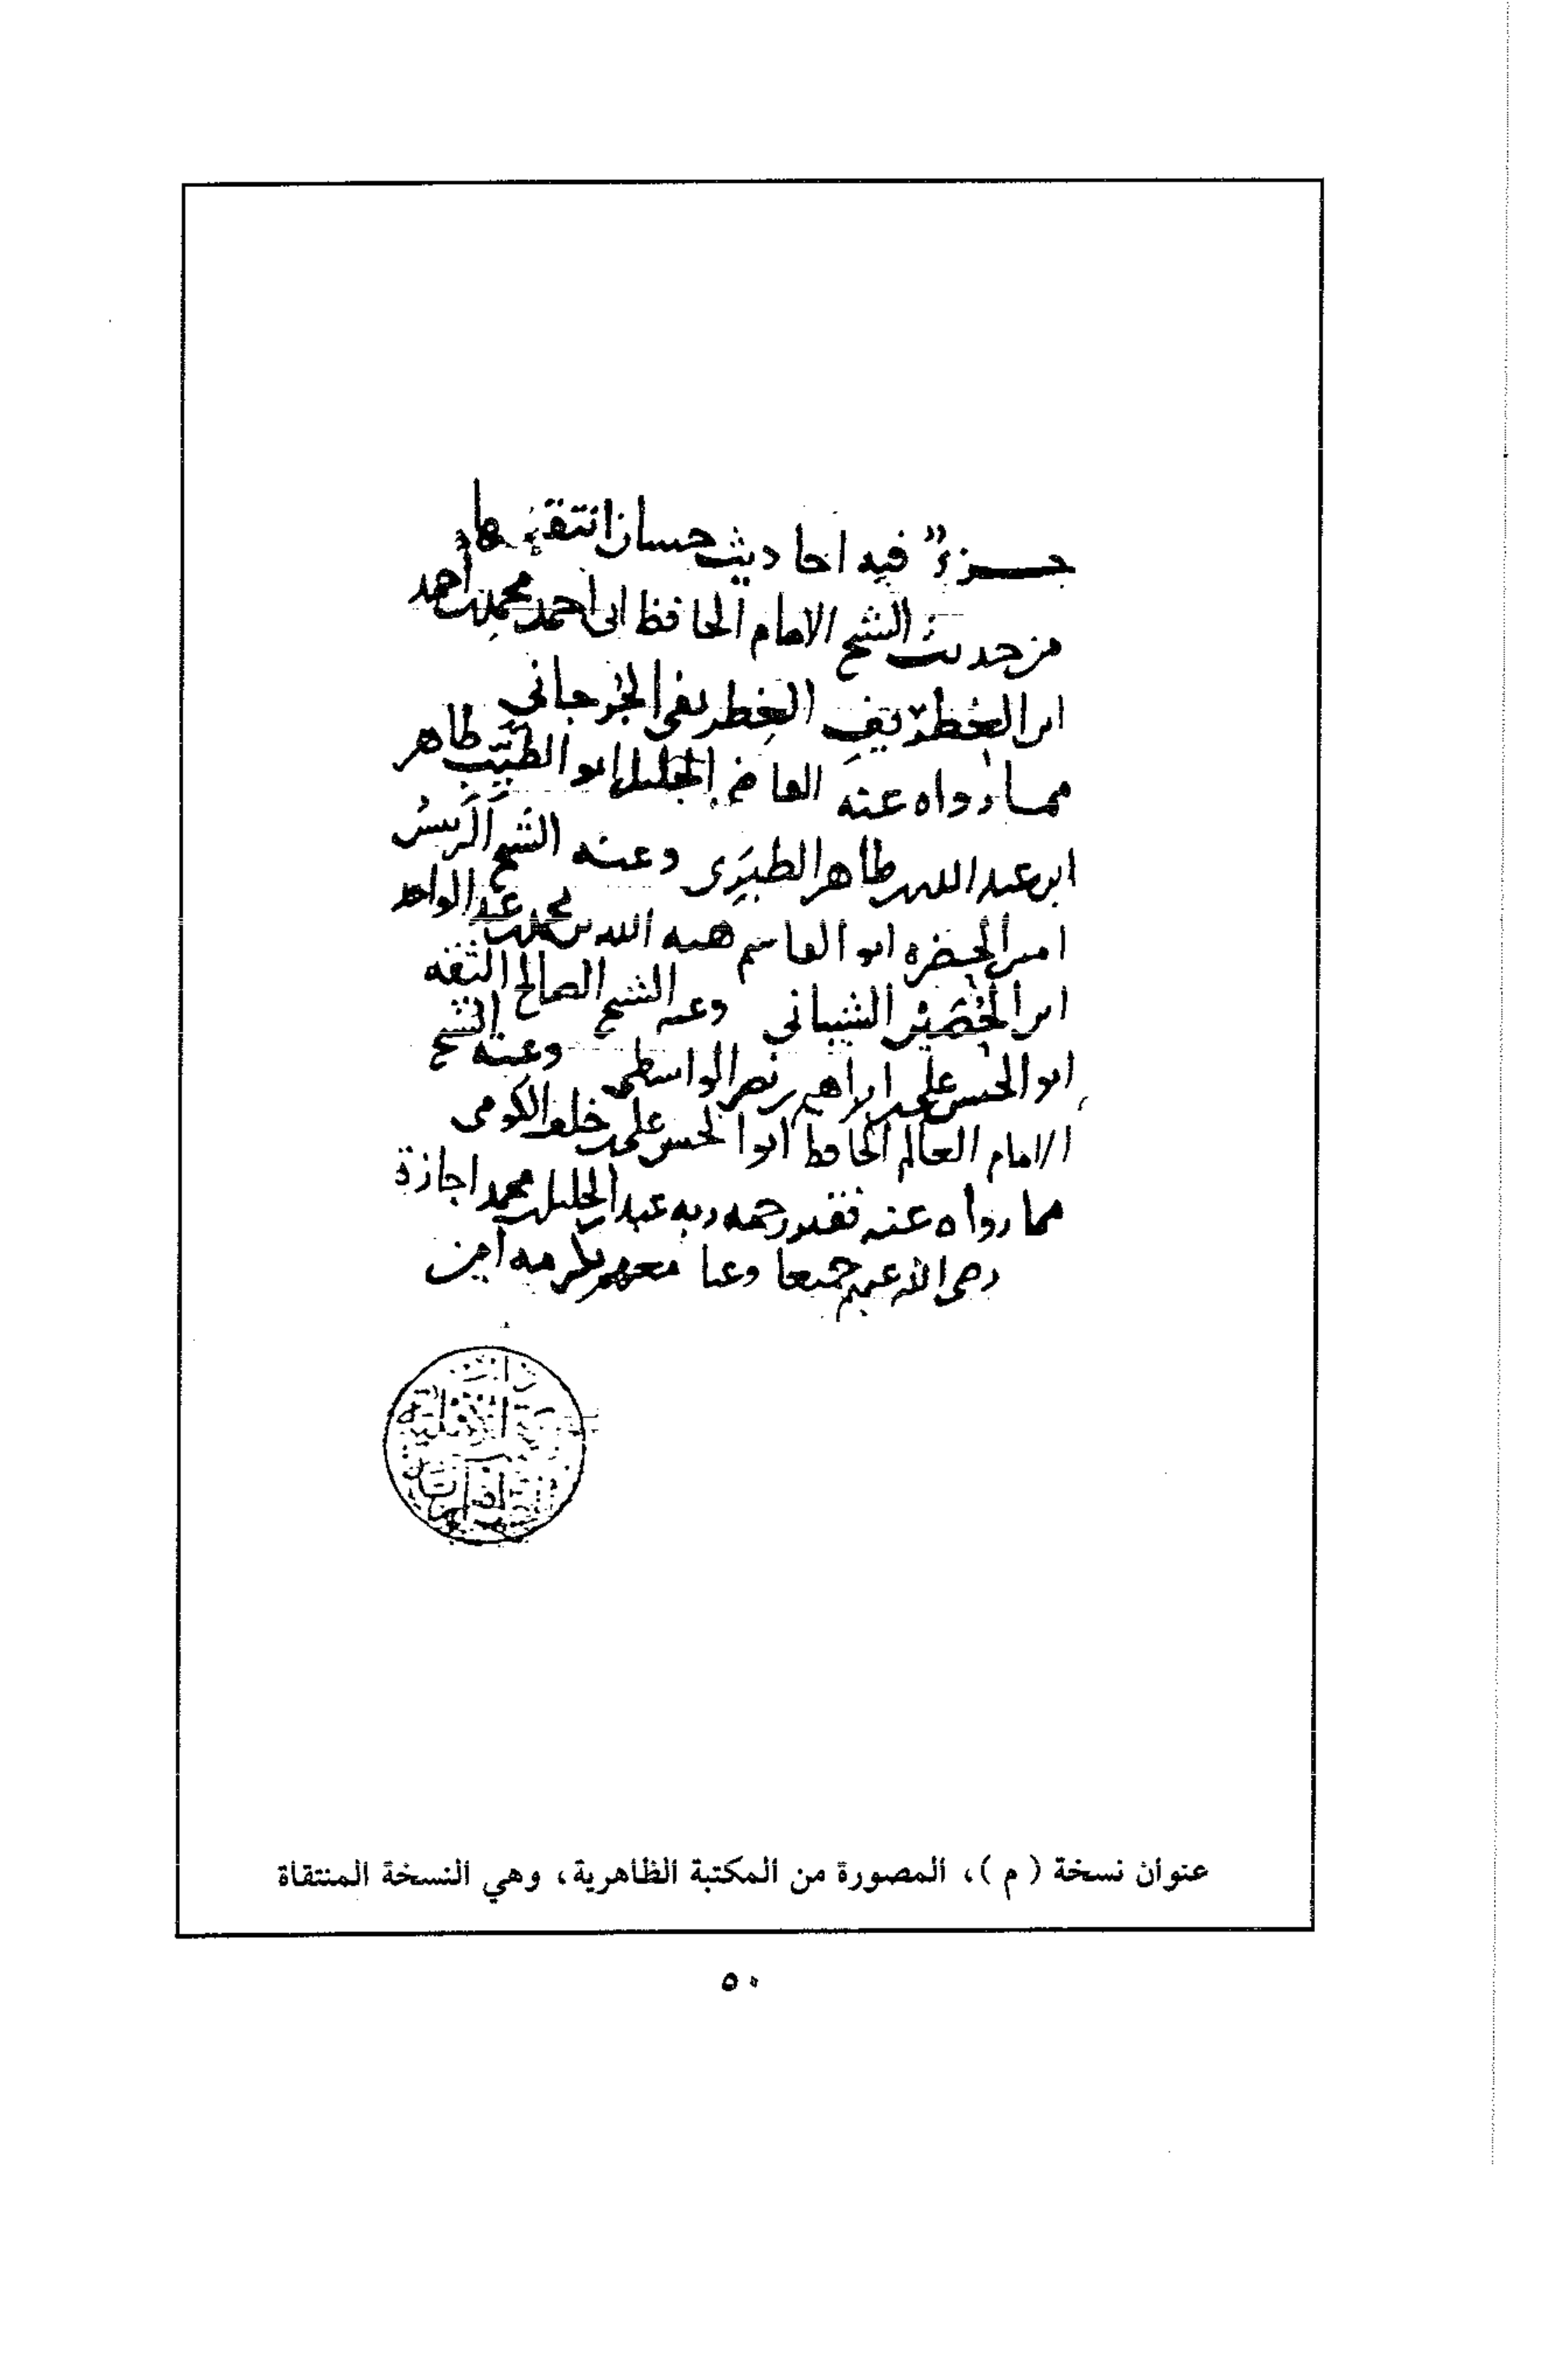 جزء فيه احاديث حسان انتقيتها
من حديث الشيخ الامام الحافظ ابي احمد محمد بن احمد
ابن الغطريف الغطريفي الجرجاني
مما رواه عنه القاضي الجليل ابو الطيب طاهر
ابن عبد الله بن طاهر الطبري وعنه الشيخ الرييس
امين الحضره ابو القاسم هبه الله بن محمد بن عبد الواحد
ابن الحصين الشيباني وعنه الشيخ الصالح الثقه
ابو الحسن علي بن ابراهيم بن نصر الواسطي وعنه الشيخ
الامام العالم الحافظ ابو الحسن علي بن خلف الكومي
مما رواه عنه فقير رحمه ربه عبد الجليل بن محمد اجازة
رضي الله عنهم جميعا وعنا معهم بكرمه امين
عنوان نسخة ( م )، المصورة من المكتبة الظاهرية، وهي النسخة المنتقاة
٥٠